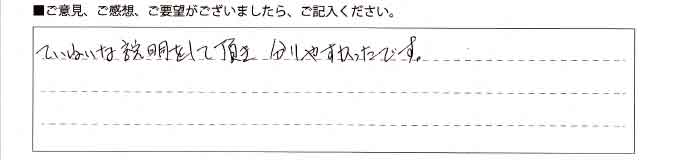 ■ご意見、ご感想、ご要望がございましたら、ご記入ください。
ていねいな説明をして頂き 分りやすかったです。